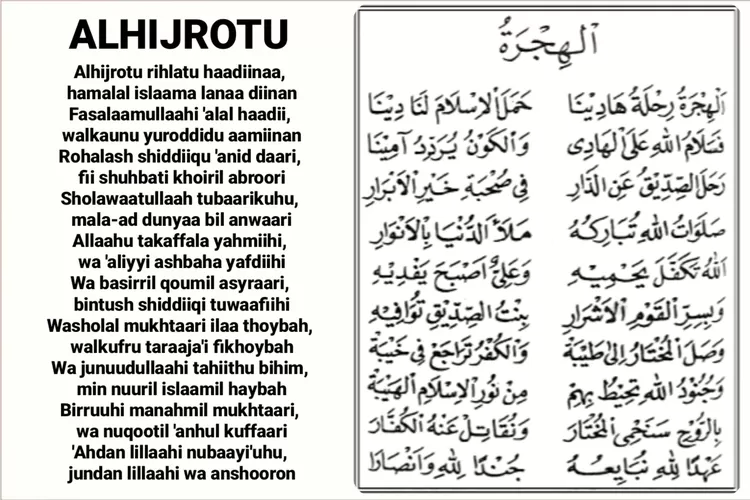 ALHIJROTU
Alhijrotu rihlatu haadiinaa,
hamalal islaama lanaa diinan
Fasalaamullaahi 'alal haadii,
walkaunu yuroddidu aamiinan
Rohalash shiddiiqu 'anid daari,
fii shuhbati khoiril abroori
Sholawaatullaah tubaarikuhu,
mala-ad dunyaa bil anwaari
Allaahu takaffala yahmiihi,
wa 'aliyyi ashbaha yafdiihi
Wa basirril qoumil asyraari,
bintush shiddiiqi tuwaafiihi
Washolal mukhtaari ilaa thoybah,
walkufru taraaja'i fikhoybah
Wa junuudullaahi tahiithu bihim,
min nuuril islaamil haybah
Birruuhi manahmil mukhtaari,
wa nuqootil 'anhul kuffaari
'Ahdan lillaahi nubaayi'uhu,
jundan lillaahi wa anshooron
اَلْهِجْرَةُ
اَلْهِجْرَةُ رِحْلَةُ هَادِيْنَا حَمَلَ الْاِسْلَامَ لَنَا دِيْنَا
فَسَلَامُ اللهِ عَلَى الْهَادِى وَالْكَوْنُ يُرَدِّدُ آمِيْنَا
رَحَلَ الصِّدِّيْقُ عَنِ الدَّارِ فِى صُحْبَةِ خَيْرِ الْاَبْرَارِ
صَلَوَاتُ اللهِ تُبَارِكُهُ مَلَأَ الدُّنْيَا بِالْاَنْوَارِ
اَللهُ تَكَفَّلَ يَحْمِيْهِ وَعَلِيٌّ اَصْبَحَ يَفْدِيْهِ
وَبِسِرِّ الْقَوْمِ الْاَشْرَارِ بِنْتُ الصِّدِّيْقِ تُوَافِيْهِ
وَصَلَ الْمُخْتَارُ اِلَى طَيْبَةْ وَالْكُفْرُ تَرَاجَعَ فِى خَيْبَةْ
وَجُنُوْدُ اللهِ تُحِيْطُ بِهِمْ مِنْ نُوْرِ الْاِسْلَامِ الْهَيْبَةْ
بِالرُّوْحِ سَنَحْمِى الْمُخْتَارَ وَنُقَاتِلُ عَنْهُ الْكُفَّارَ
عَهْدًا لِلّٰهِ نُبَايِعُهُ جُنْدًا لِلّٰهِ وَاَنْصَارًا